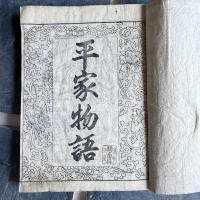 平家物語